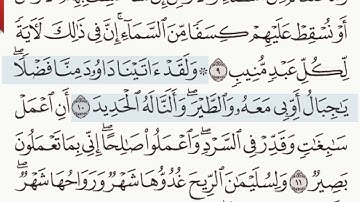 أَوۡ نُسۡقِطۡ عَلَيۡهِمۡ كِسَفٗا مِّنَ ٱلسَّمَآءِۚ إِنَّ فِي ذَٰلِكَ لَأٓيَةٗ
لِّكُلِّ عَبۡدٖ مُّنِيبٖ ٩ ۞ وَلَقَدۡ ءَاتَيۡنَا دَاوُۥدَ مِنَّا فَضۡلٗاۖ
يَٰجِبَالُ أَوِّبِي مَعَهُۥ وَٱلطَّيۡرَۖ وَأَلَنَّا لَهُ ٱلۡحَدِيدَ ١٠ أَنِ ٱعۡمَلۡ
سَٰبِغَٰتٖ وَقَدِّرۡ فِي ٱلسَّرۡدِۖ وَٱعۡمَلُواْ صَٰلِحًاۖ إِنِّي بِمَا تَعۡمَلُونَ
بَصِيرٞ ١١ وَلِسُلَيۡمَٰنَ ٱلرِّيحَ غُدُوُّهَا شَهۡرٞ وَرَوَاحُهَا شَهۡرٞۖ